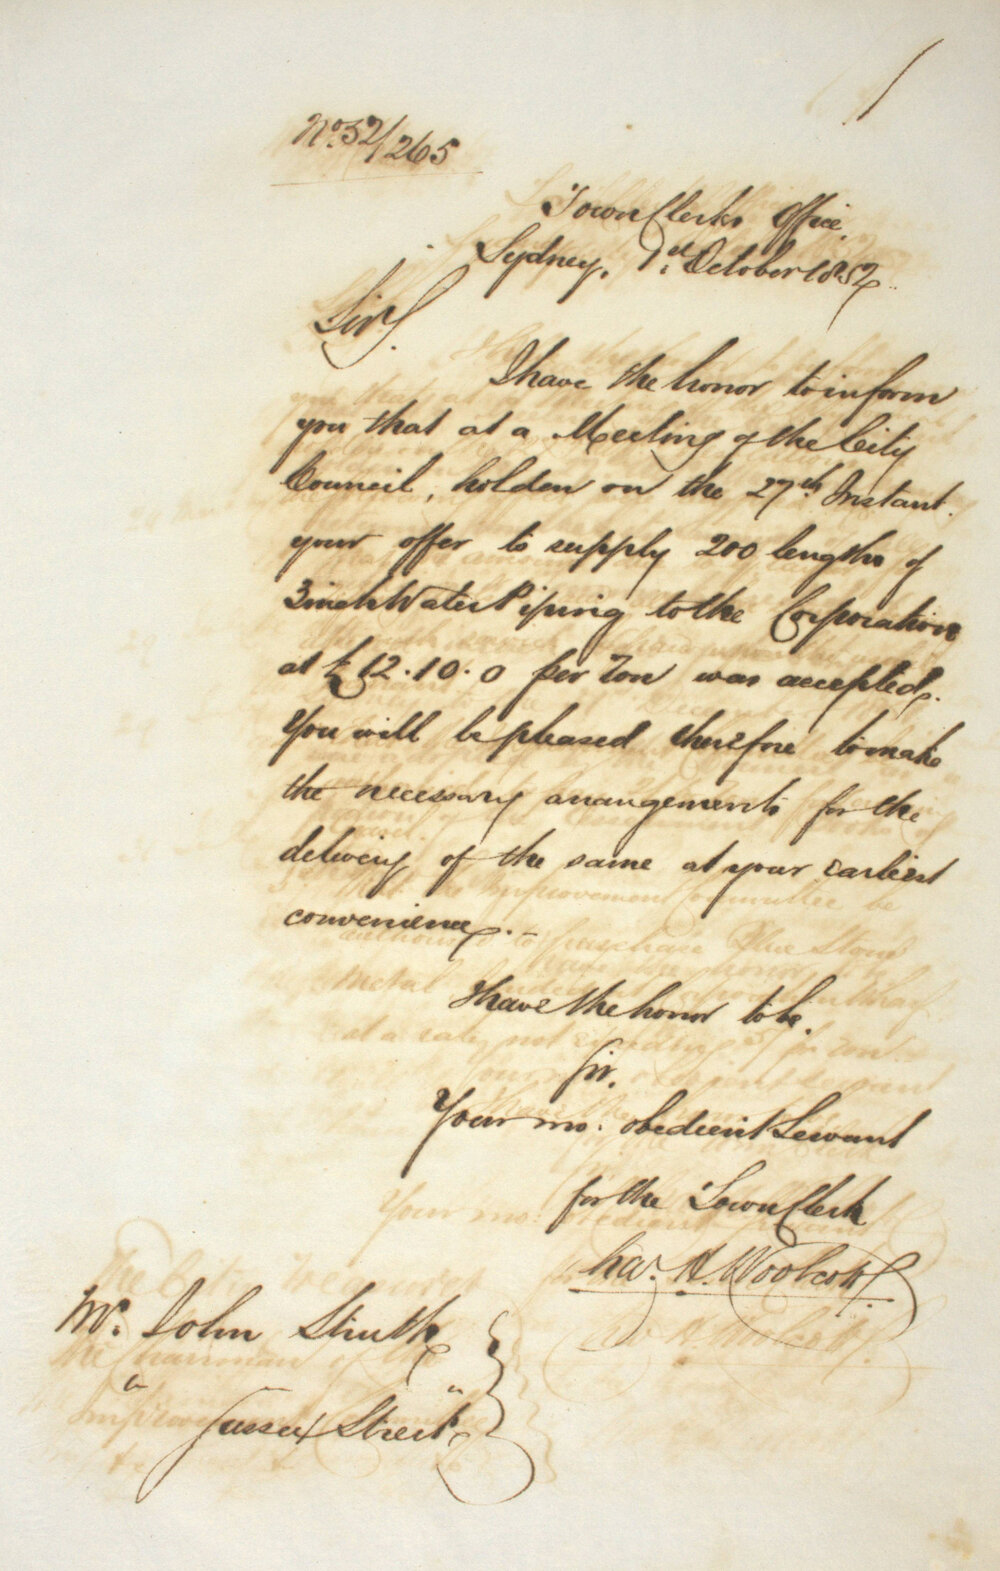 No. 52/265
Town Clerk's Office,
Sydney, 1st October 1852.
Sir,
I have the honor to inform
you that at a Meeting of the City
Council, holden on the 27th Instant.
your offer to supply 200 lengths of
3 inch Water Piping to the Corporation
at £12.10.0 per Ton was accepted.
You will be pleased therefore to make
the necessary arrangements for the
delivery of the same at your earliest
convenience.-
I have the honor to be,
Sir,
Your mo. obedient Servant
for the Town Clerk
Chas. H. Woolcott.
Mr. John Struth
" Sussex Street "